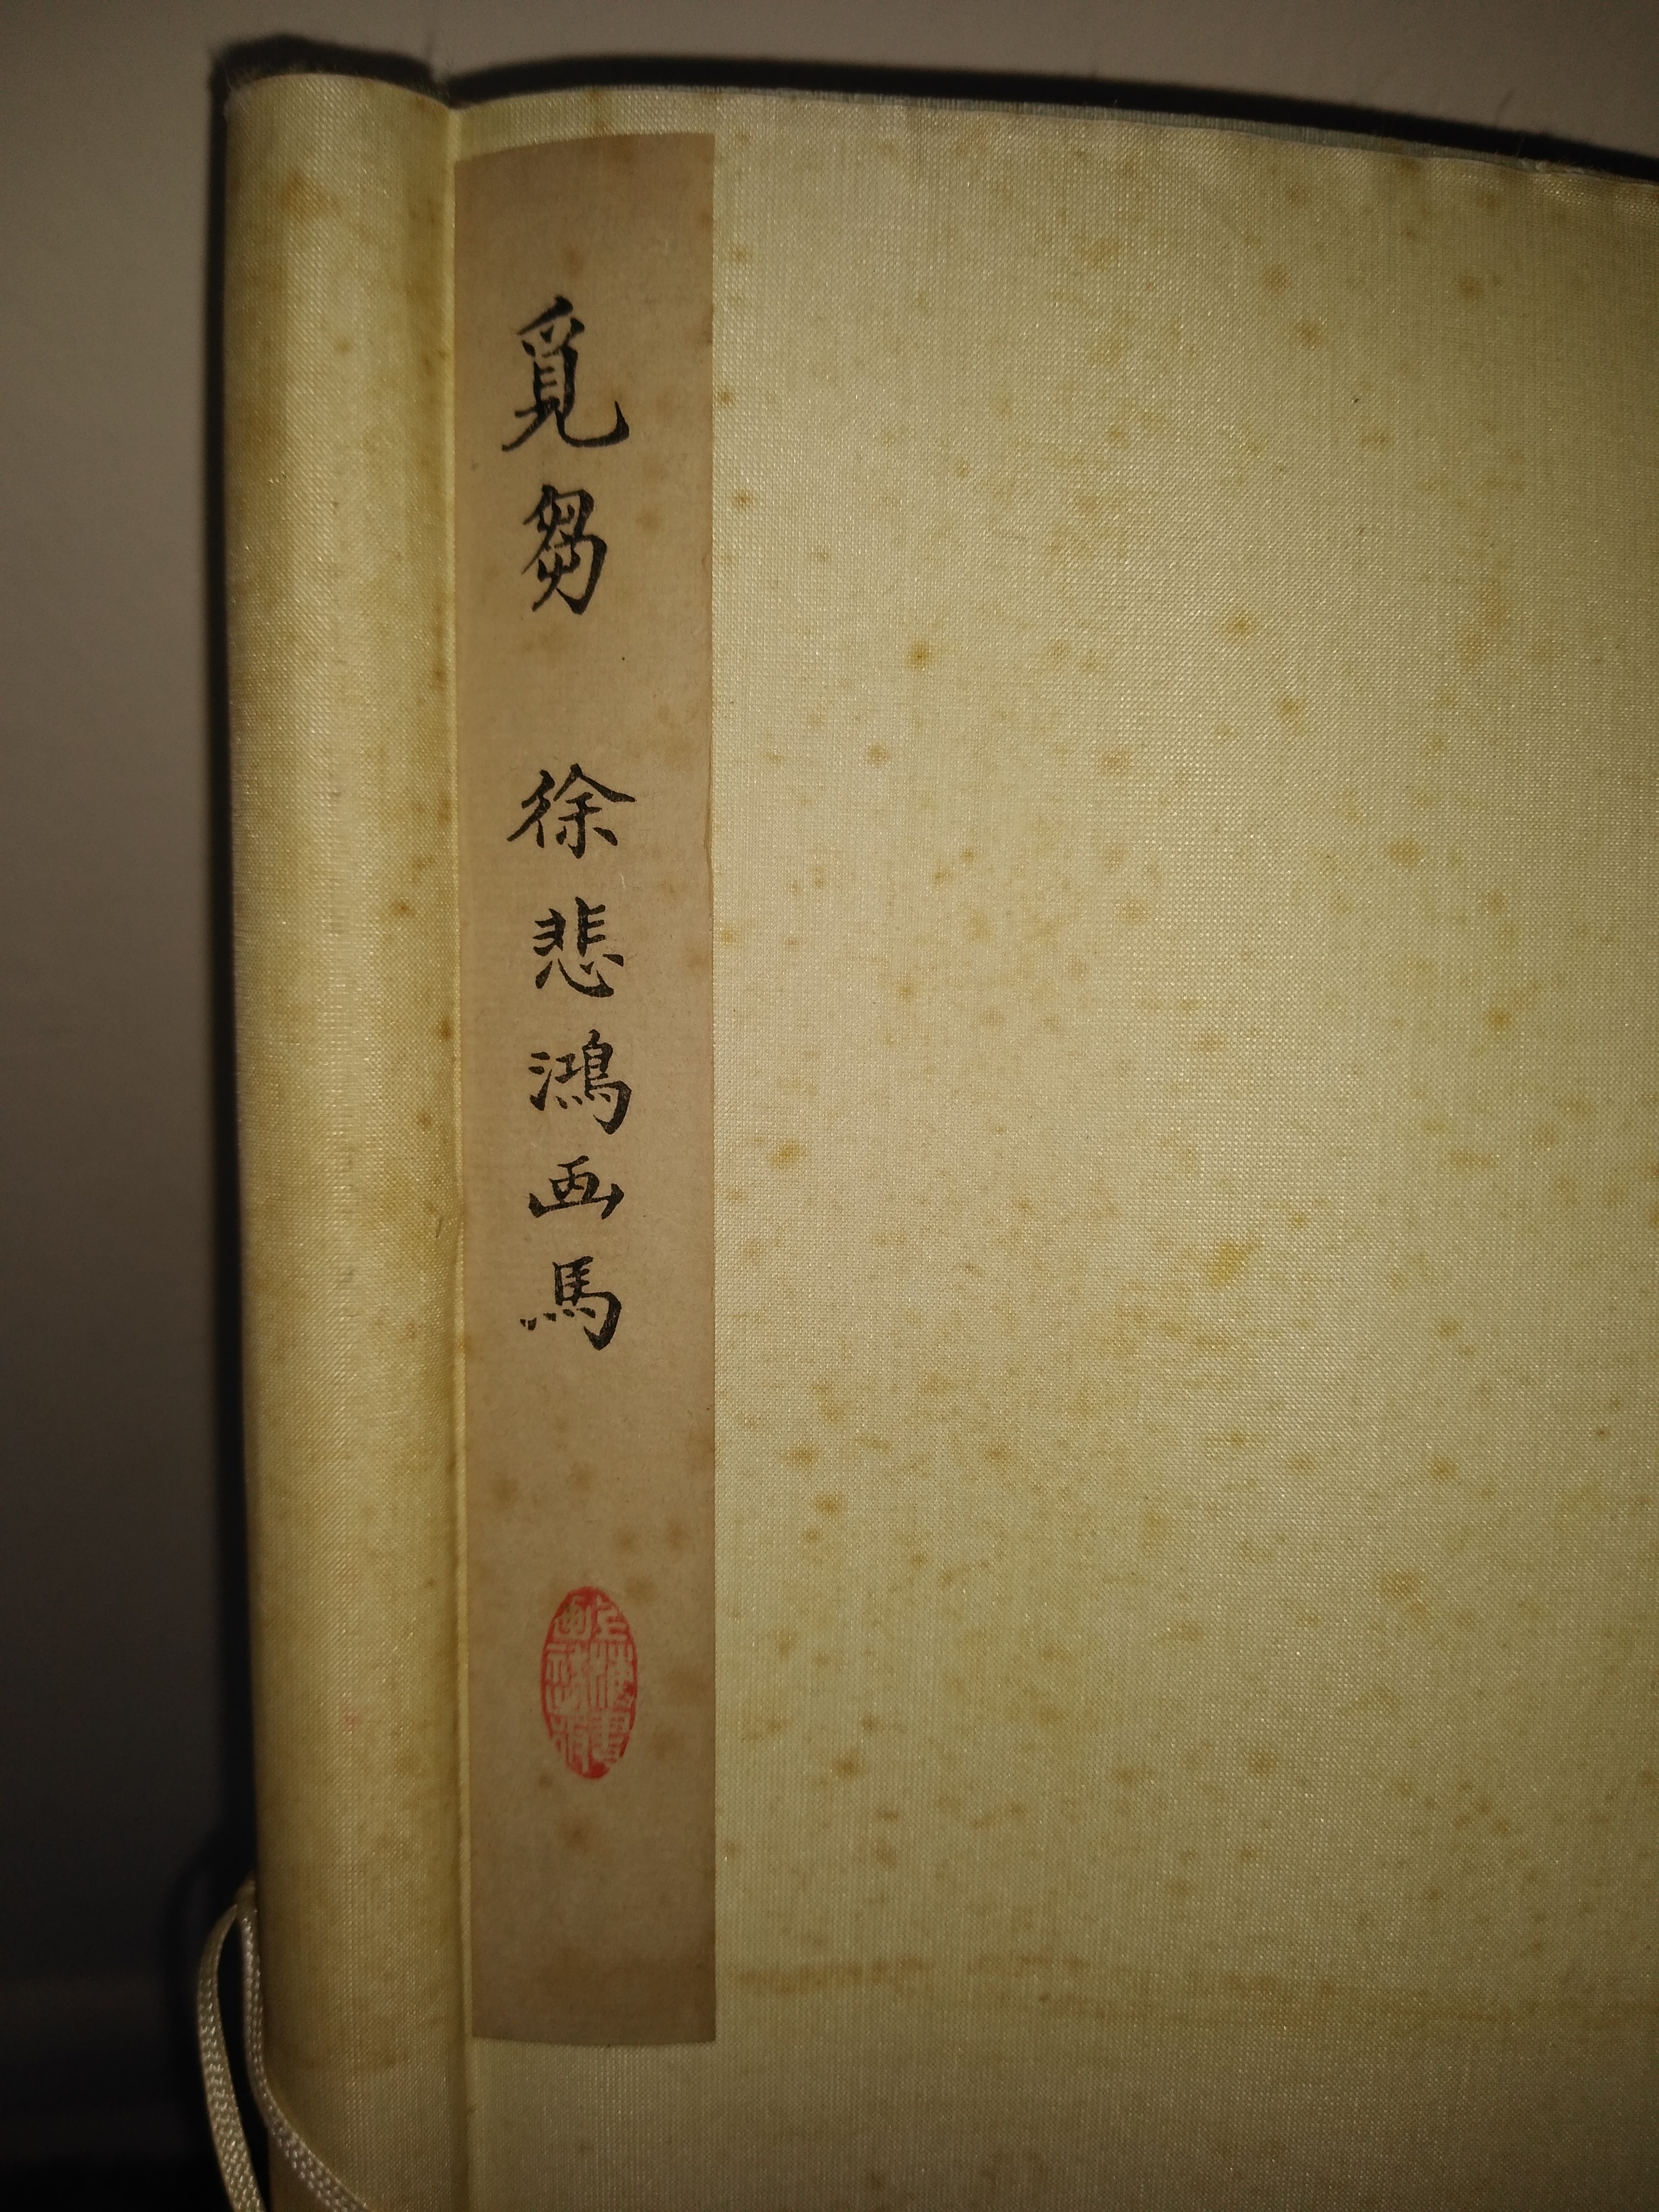 覓芻 徐悲鴻画馬